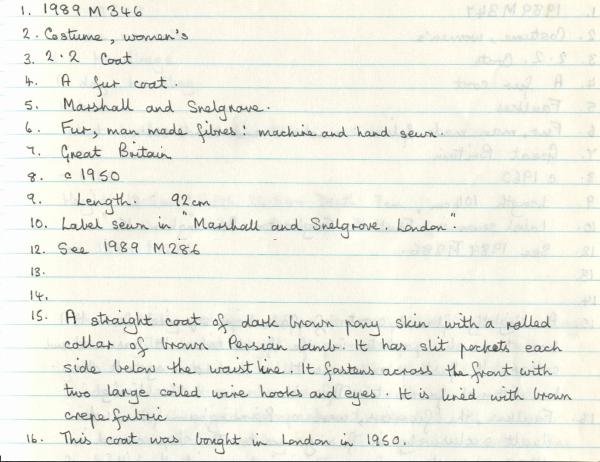 1. 1989 M 346
2. Costume, women's
3. 2.2 Coat
4. A fur coat.
5. Marshall and Snelgrove.
6. Fur, man made fibres: machine and hand sewn.
7. Great Britain
8. c 1950
9. Length. 92cm
10. Label sewn in "Marshall and Snelgrove. London".
12. See 1989 M286
13.
14.
15. A straight coat of dark brown pony skin with a rolled
collar of brown Persian lamb. It has slit pockets each
side below the waist line. It fastens across the front with
two large coiled wire hooks and eyes. It is lined with brown
crepe fabric
16. This coat was bought in London in 1950.